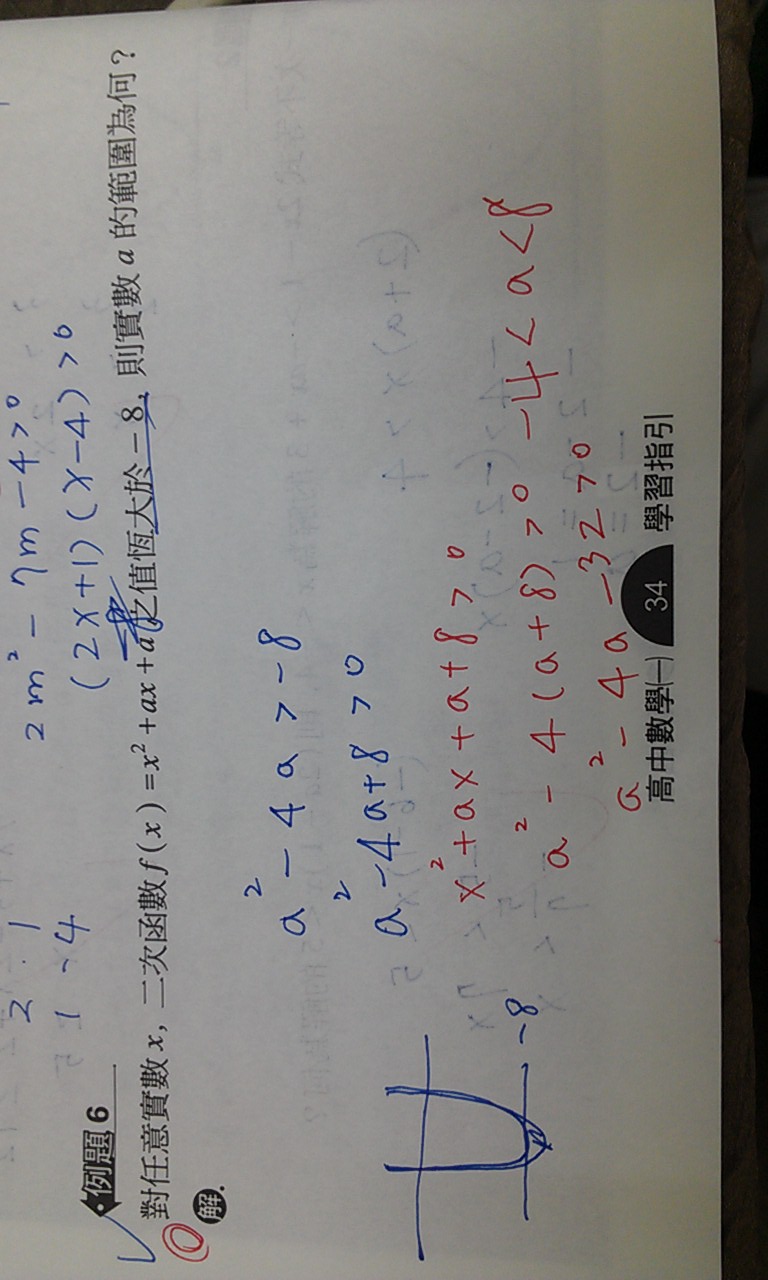 2 . 1
1 - 4
2m² - 7m - 4 > 0
(2x+1)(x-4) > 0
例題 6
對任意實數 x，二次函數 f(x)=x²+ax+a 之值恆大於 -8，則實數 a 的範圍為何？
解.
a² - 4a > -8
a² - 4a + 8 > 0
-8
x² + ax + a + 8 > 0
a² - 4(a+8) > 0
-4 < a < 8
a² - 4a - 32 > 0
高中數學(一) 34 學習指引